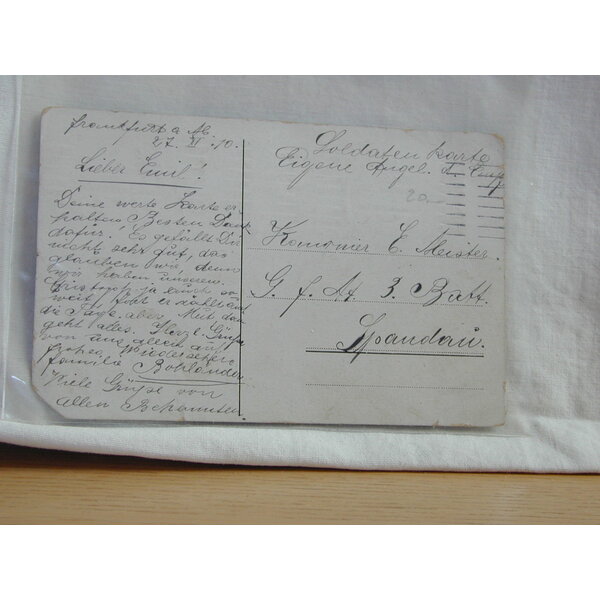 Frankfurt a. M.
27. XI. 10.
Lieber Emil!
Deine werte Karte er-
halten. Besten Dank
dafür! Es gefällt Dir
nicht sehr gut, das
glauben wir, denn
wir haben unseren
ja auch so
weit, er zählt auf
die Tage. aber Mut das
geht alles. Herzl. Grüße
von uns allen auf
Wiedersehen
Familie Bohländer
Viele Grüße von
allen Bekannten
Soldatenkarte
Eigene Angel. d. Empf.
20
Kanonier E. Meister.
G. f. A. 3. Batt.
Spandau.